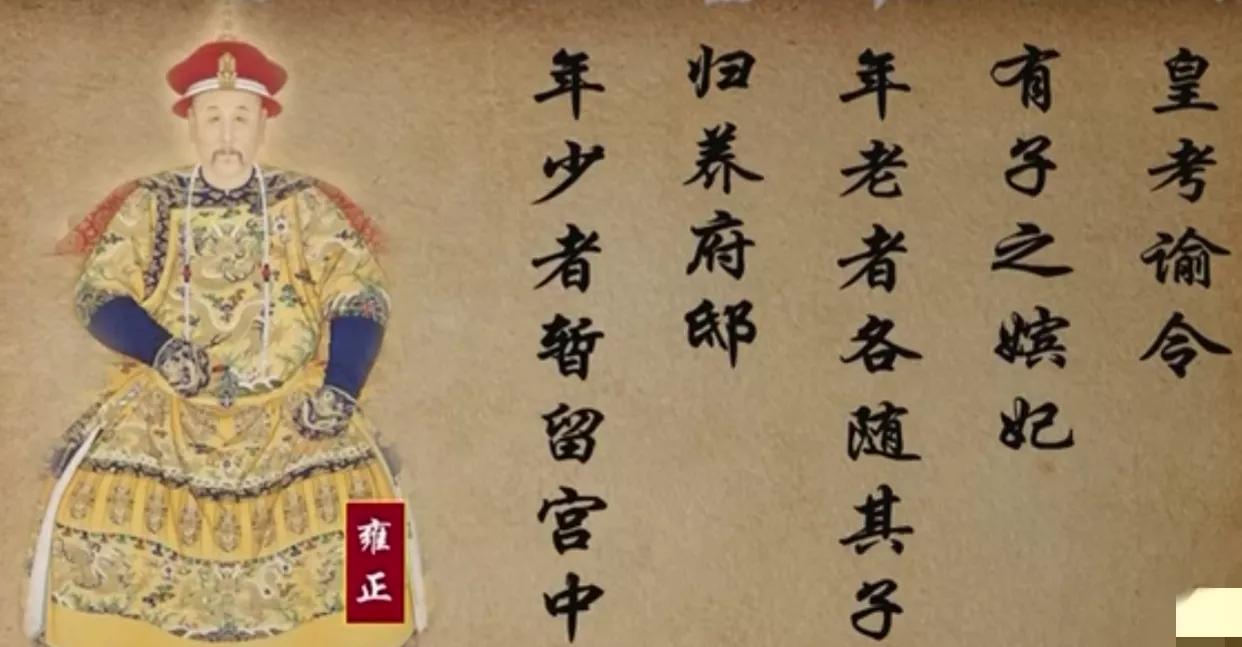 皇考谕令
有子之嫔妃
年老者各随其子
归养府邸
年少者暂留宫中
雍正